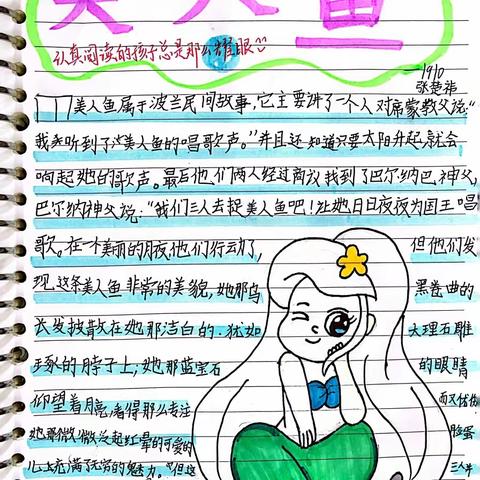 美人鱼
认真阅读的孩子总是那么耀眼
—1910
张楚祎
美人鱼属于波兰民间故事,它主要讲了一个人对席蒙教父说:“
我乘听到了这美人鱼的唱歌声。”并且还知道只要太阳升起,就会
响起她的歌声。最后他们两人经过商议找到了巴尔纳巴神父,
巴尔纳神父说:“我们三人去捉美人鱼吧!让她日日夜夜为国王唱
歌。在一个美丽的月夜他们行动了,但他们发
现,这条美人鱼非常的美貌,她那乌黑卷曲的
长发披散在她那洁白的.犹如大理石雕
琢的脖子上;她那蓝宝石的眼睛
仰望着月亮,看得那么专注而又忧伤
她那微微泛起红晕的可爱的脸蛋
儿上充满了无穷的魅力。“但这三个